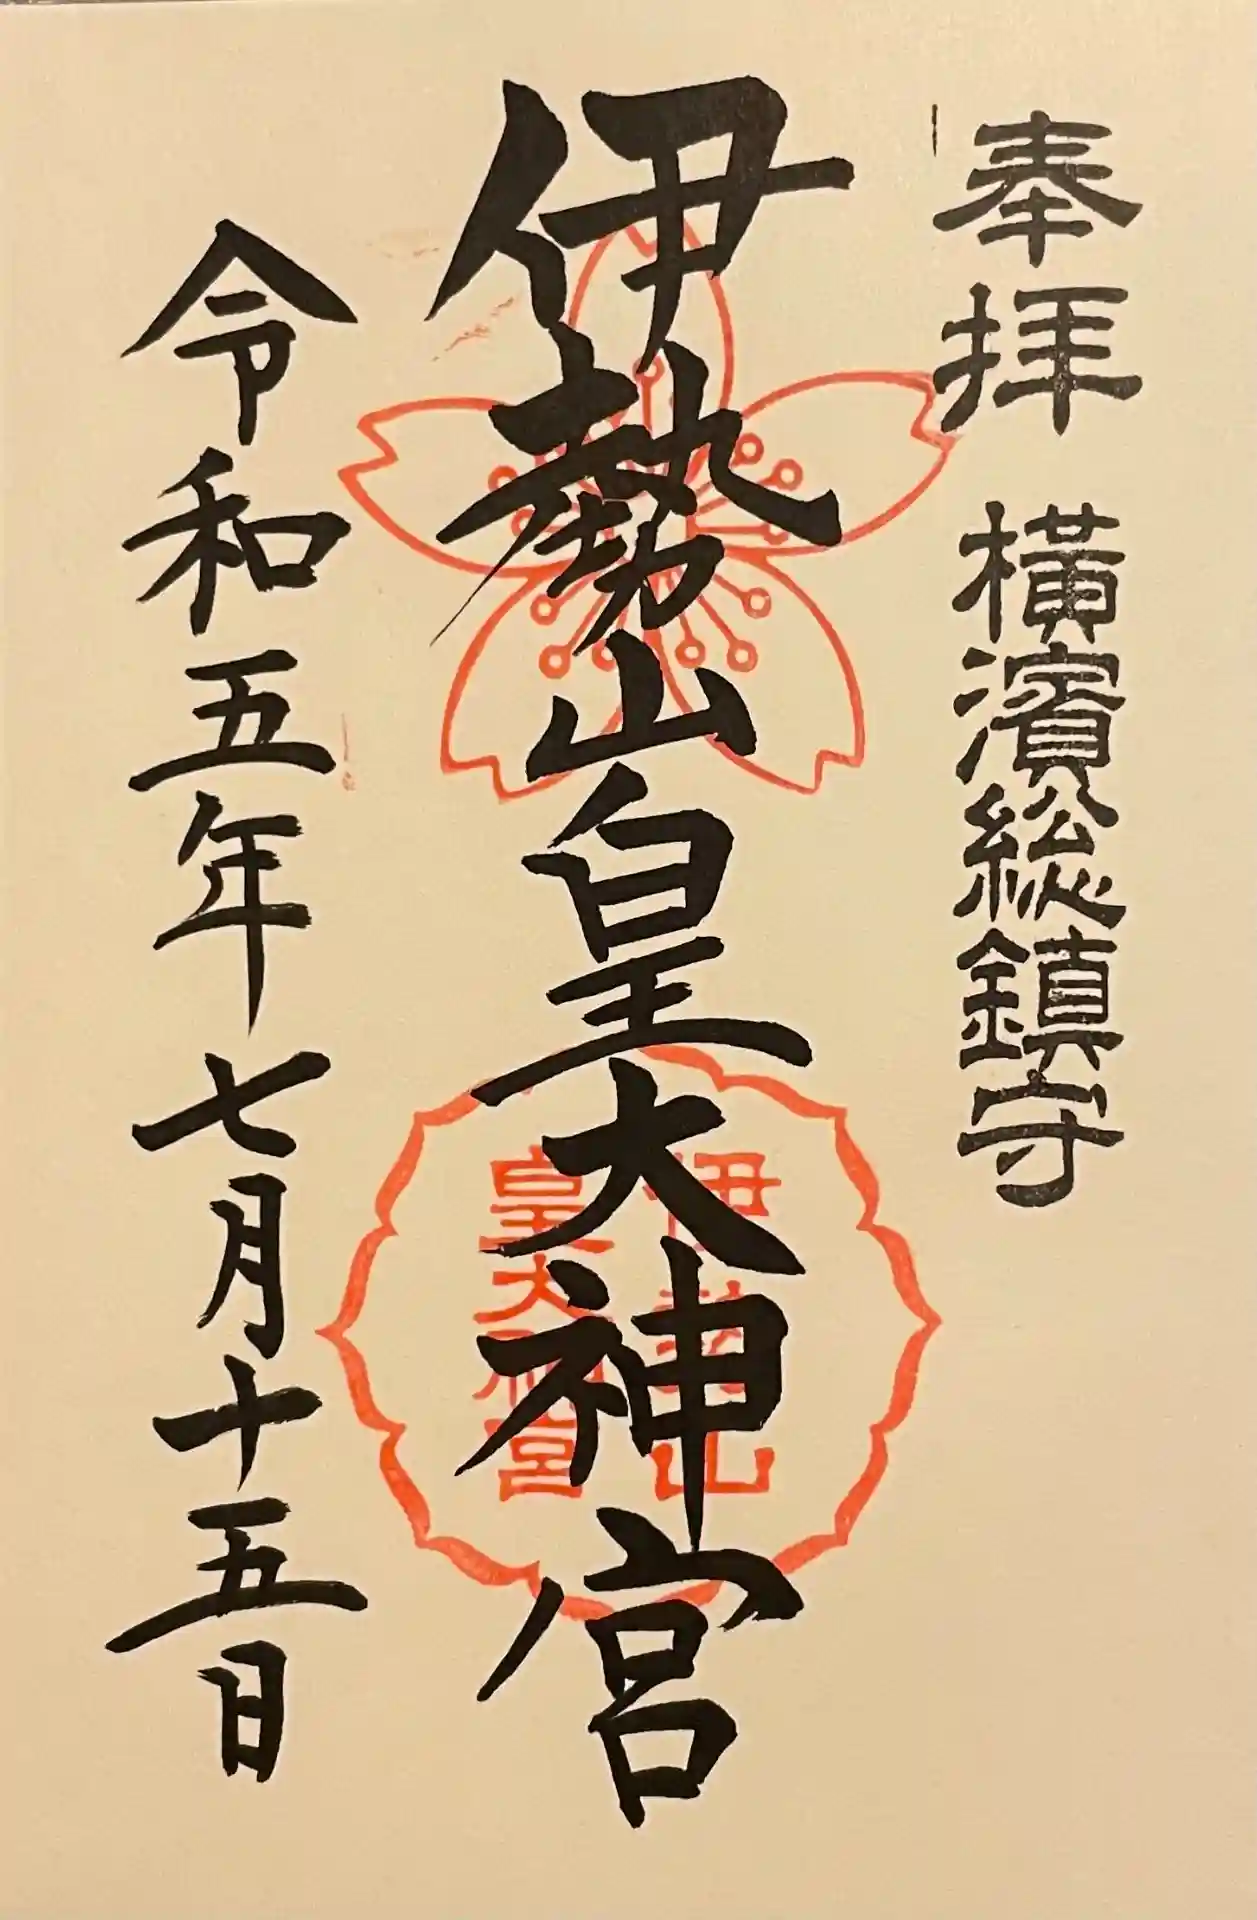 奉拝　横濱総鎮守
伊勢山皇大神宮
伊勢山
皇大神宮
令和五年七月十五日